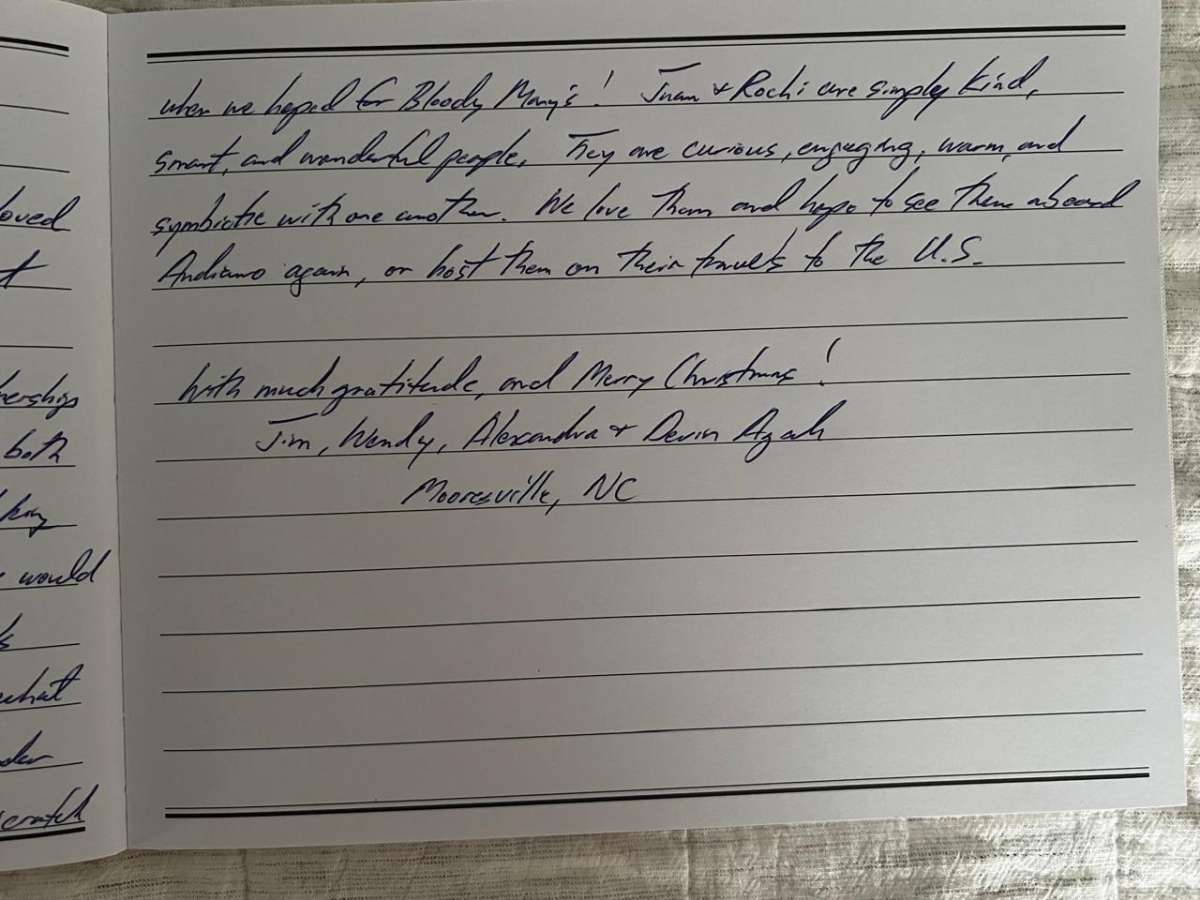 loved
t
nerships
both
king
would
ks
what
der
scratch
when we hoped for Bloody Mary's! Juan & Rochi are simply kind,
smart, and wonderful people. They are curious, engaging, warm, and
symbiotic with one another. We love them and hope to see them aboard
Andiamo again, or host them on their travels to the U.S.
With much gratitude, and Merry Christmas!
Jim, Wendy, Alexandra & Devin Azah
Mooresville, NC